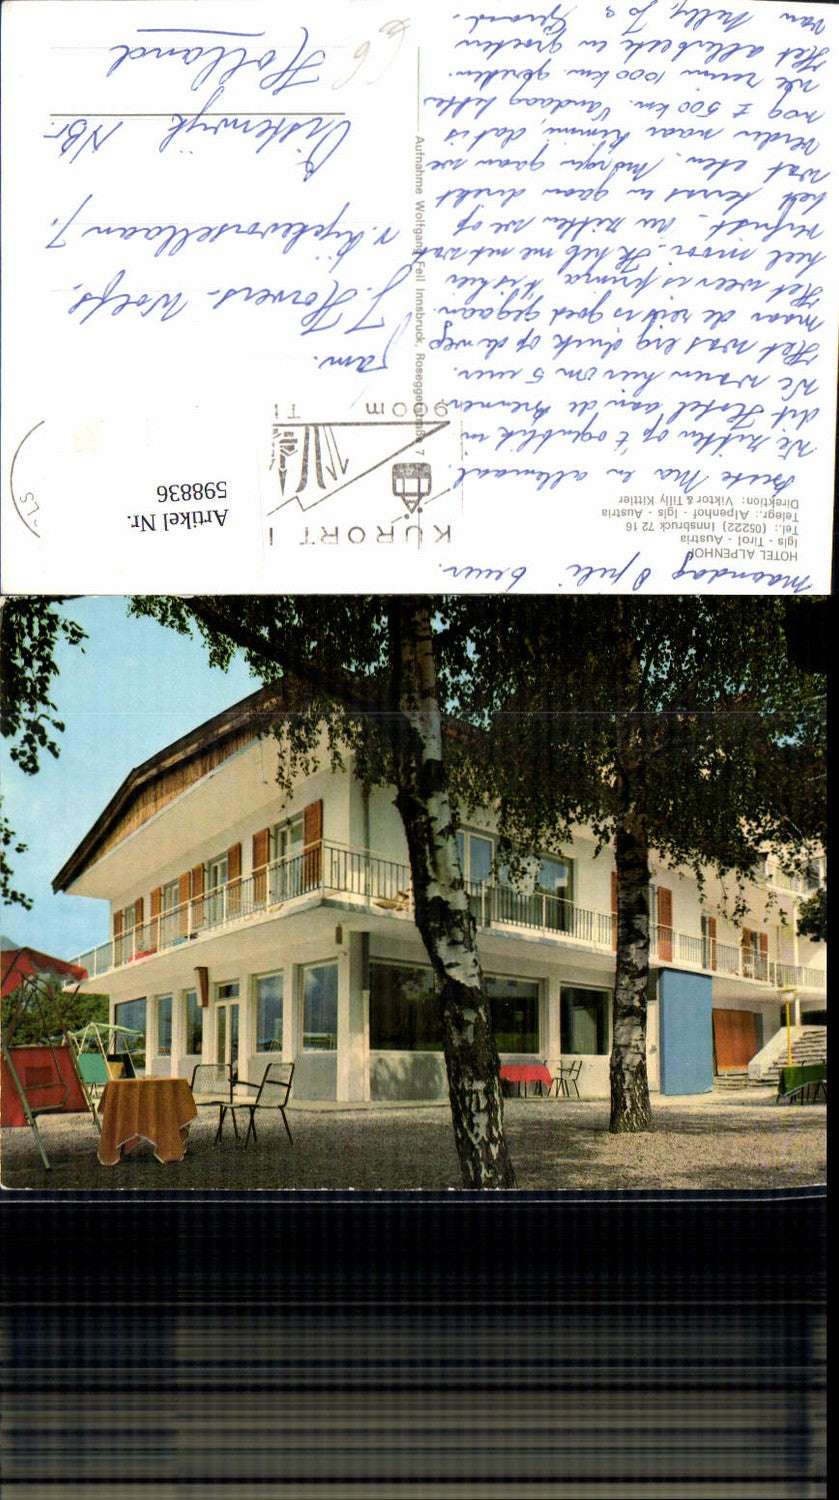 HOTEL ALPENHOF
Igls - Tirol - Austria
Tel.: (05222) Innsbruck 72 16
Telegr.: Alpenhof - Igls - Austria
Direktion: Viktor & Tilly Kittler
maandag 8 juli 6 uur.
Beste Ma en allemaal.
We zitten op 't ogenblik in
dit Hotel aan de Brenner.
We waren hier om 5 uur.
Het was erg druk op de weg
maar de reis is goed gegaan.
Het weer is prima & is hier
heel mooi. Ik heb me net wat
verfrist. Nu zitten we op
het terras en gaan direkt
wat eten. Morgen gaan we
verder naar Rimini, dat is
nog ± 500 km. Vandaag hebben
we ruim 1000 km. gereden.
Het allerbeste en groeten
van Nelly, Jo & Gerard.
Aufnahme Wolfgang Feil Innsbruck, Roseggerstraße 7
KURORT I
900m TI
LS
Artikel Nr.
598836
Fam.
J. Hovers-Wolfs.
Oisterwijk NBr.
Holland
66